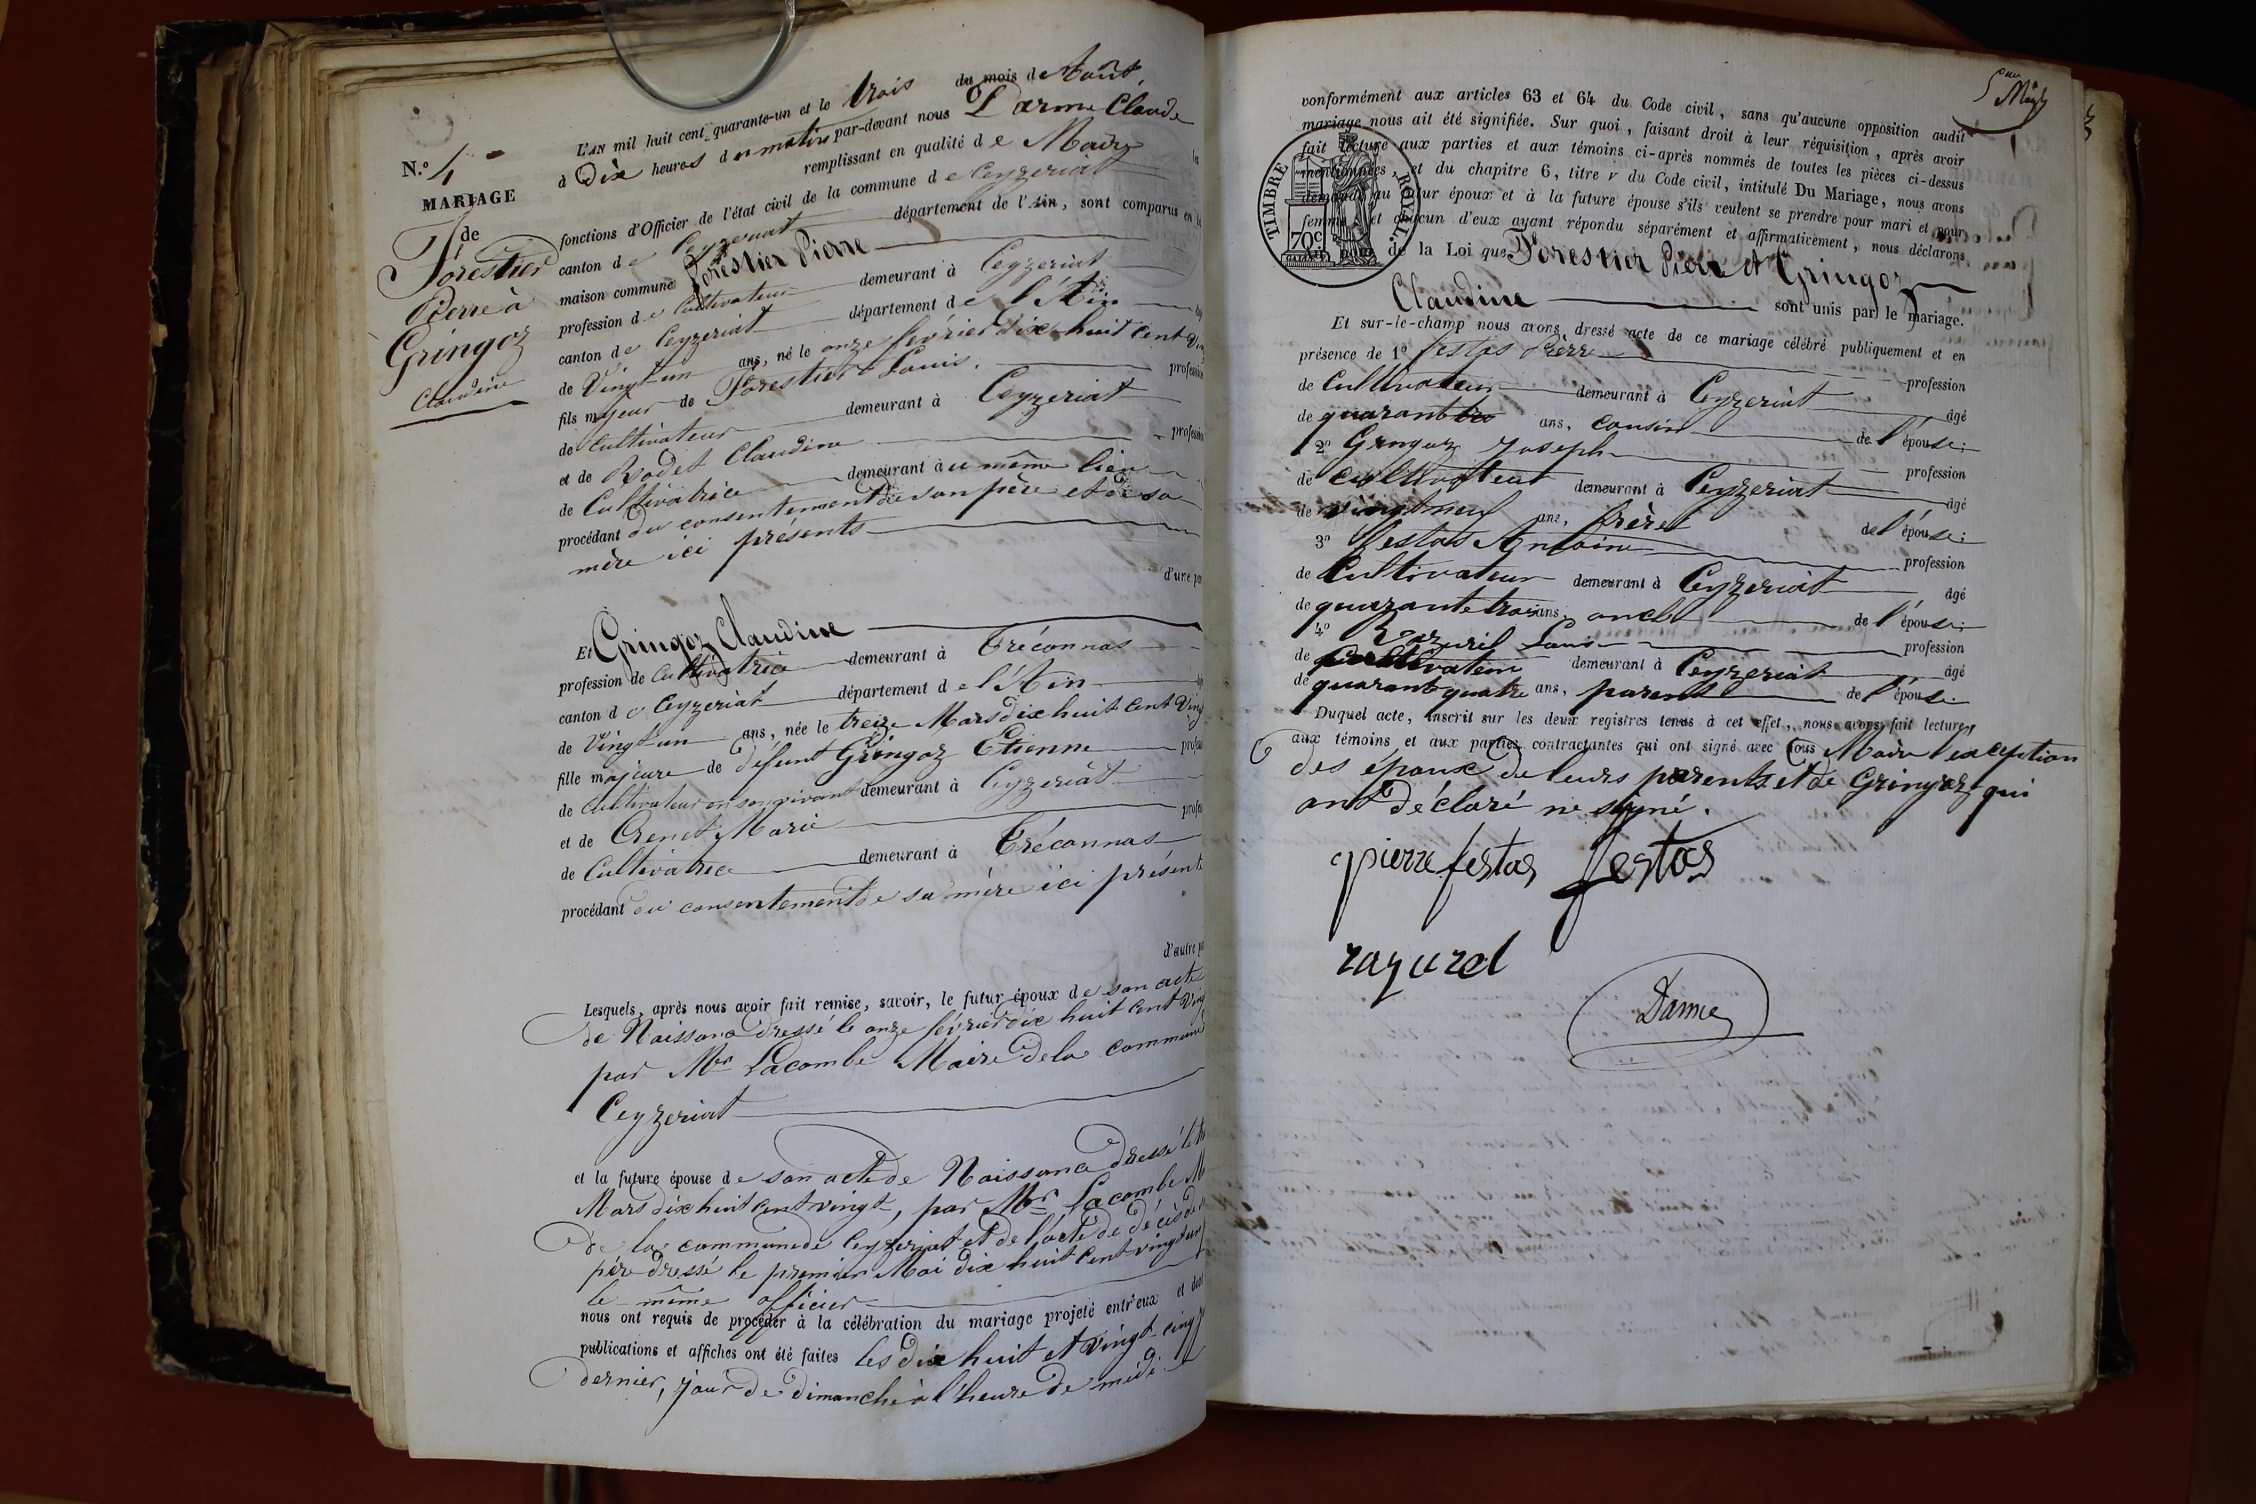 N.o 4
MARIAGE
de
Forestier
Pierre à
Gringoz
Claudine
L'AN mil huit cent quarante-un et le trois du mois de Août
à Dix heures du matin par-devant nous Darme Claude
remplissant en qualité de Maire les
fonctions d'Officier de l'état civil de la commune de Ceyzeriat
canton de Ceyzeriat département de l'Ain, sont comparus en la
maison commune Forestier Pierre
profession de Cultivateur demeurant à Ceyzeriat
canton de Ceyzeriat département de l'Ain
de Vingt un ans, né le onze février dix huit cent Vin
fils majeur de Forestier Louis. profession
de Cultivateur demeurant à Ceyzeriat
et de Rodet Claudine profession
de Cultivatrice demeurant à u même lieu
procédant du consentement de son père et de sa
mère ici présents
d'une pa
Et Gringoz Claudine
profession de Cultivatrice demeurant à Tréconnas
canton de Ceyzeriat département de l'Ain
de Vingt un ans, née le treize Mars dix huit cent Ving
fille majeure de défunt Gringoz Etienne profess
de Cultivateur en son vivant demeurant à Ceyzeriat
et de Crenet Marie profes
de Cultivatrice demeurant à Tréconnas
procédant du consentement de sa mère ici présente
d'autre pa
Lesquels, après nous avoir fait remise, savoir, le futur époux de son acte
de Naissance dressé le onze février dix huit cent Ving
par Mr Lacombe Maire de la commune
Ceyzeriat
et la future épouse de son acte de Naissance dressé le tr
Mars dix huit cent vingt, par Mr Lacombe M
de la commune de Ceyzeriat et de l'acte de décès de s
père dressé le premier Mai dix huit cent vingt un
le même officier
nous ont requis de procéder à la célébration du mariage projeté entr'eux et dont
publications et affiches ont été faites les dix huit et vingt cinq
dernier, jour de dimanche à l'heure de midi
conformément aux articles 63 et 64 du Code civil, sans qu'aucune opposition audit
mariage nous ait été signifiée. Sur quoi, faisant droit à leur réquisition, après avoir
fait lecture aux parties et aux témoins ci-après nommés de toutes les pièces ci-dessus
mentionnées, et du chapitre 6, titre V du Code civil, intitulé Du Mariage, nous avons
demandé au futur époux et à la future épouse s'ils veulent se prendre pour mari et pour
femme et chacun d'eux ayant répondu séparément et affirmativement, nous déclarons
au nom de la Loi que Forestier Pierre et Gringoz
Claudine sont unis par le mariage.
TIMBRE ROYAL.
70c
Et sur-le-champ nous avons dressé acte de ce mariage célébré publiquement et en
présence de 1o festas Pierre profession
de Cultivateur demeurant à Ceyzeriat âgé
de quarante ans, cousin de l'épouse;
2o Gringoz Joseph profession
de Cultivateur demeurant à Ceyzeriat âgé
de vingt neuf ans, frère de l'épouse;
3o festas Antoine profession
de Cultivateur demeurant à Ceyzeriat âgé
de quarante trois ans, oncle de l'épouse;
4o Razurel Louis profession
de Cultivateur demeurant à Ceyzeriat âgé
de quarante quatre ans, parent de l'épouse
Duquel acte, inscrit sur les deux registres tenus à cet effet, nous avons fait lecture
aux témoins et aux parties contractantes qui ont signé avec Nous Maire l'exception
des époux de leurs parents et de Gringoz qui
ont déclaré ne signé.
pierre festas festas
razurel
Darme